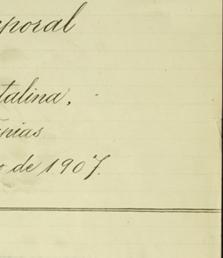 poral
talina,
nias
de 1907.